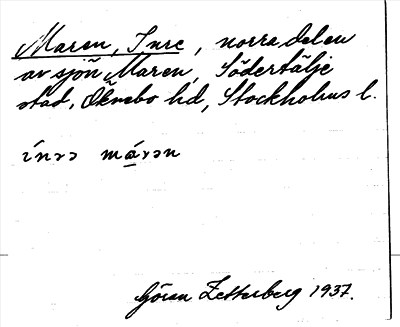 Maren, Inre, norra delen
av sjön Maren, Södertälje
stad, Öknebo hd, Stockholms l.
ínrə márən
Göran Zetterberg 1937.